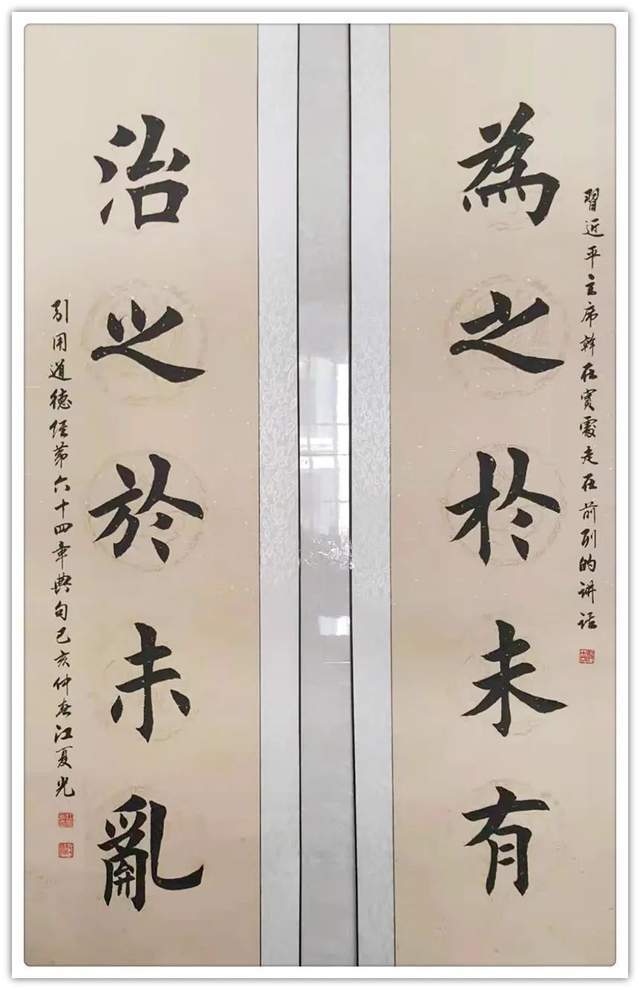 為之於未有
習近平主席幹在实處走在前列的讲话
治之於未亂
引用道德经第六十四章典句己亥仲春江夏光